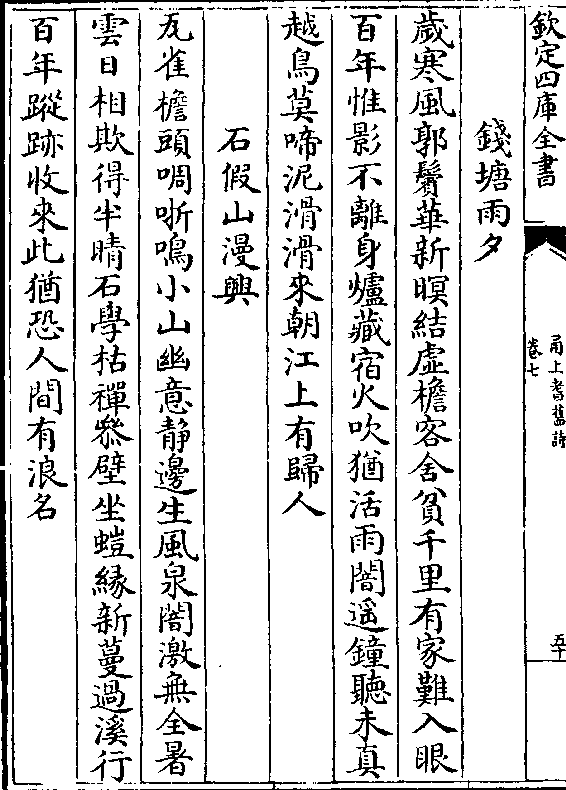 欽定四庫全書
甬上耆舊詩
卷七
五十
錢塘雨夕
歲寒風郭鬢華新暝結虛檐客舍貧千里有家難入眼
百年惟影不離身爐藏宿火吹猶活雨闇遥鐘聽未真
越鳥莫啼泥滑滑來朝江上有歸人
石假山漫興
瓦雀檐頭啁哳鳴小山幽意静邊生風泉闇激無全暑
雲日相欺得半晴石學枯禪叅壁坐螘緣新蔓過溪行
百年蹤跡收來此猶恐人間有浪名